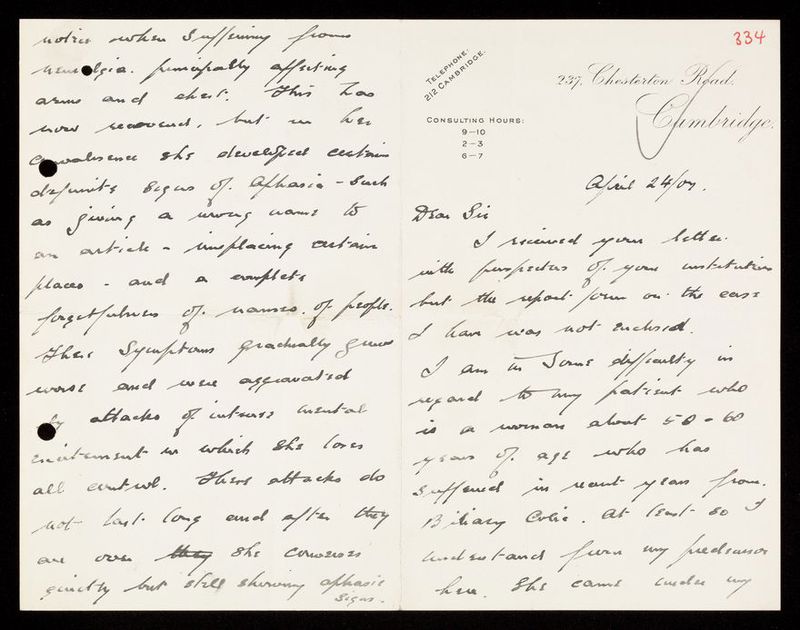 334
TELEPHONE.
212 CAMBRIDGE.
237, Chesterton Road,
Cambridge.
CONSULTING HOURS:
9–10
2–3
6–7
April 24/07.
Dear Sir
I received your letter
with prospectus of your institution
but the report form on the case
I have was not enclosed.
I am in some difficulty in
regard to my patient who
is a woman about 50–60
years of age who has
suffered in recent years from
Biliary Colic. At least so I
understand from my predecessor
here. She came under my
notice when suffering from
neuralgia. principally affecting
arms and chest. This has
now recovered, but in her
convalescence she developed certain
definite signs of Aphasia – such
as giving a wrong name to
an article – misplacing certain
places – and a complete
forgetfulness of names of people.
These symptoms gradually grew
worse and were aggravated
by attacks of intense mental
excitement in which she loses
all control. These attacks do
not last long and after they
are over they she converses
quietly but still shewing aphasic
signs.